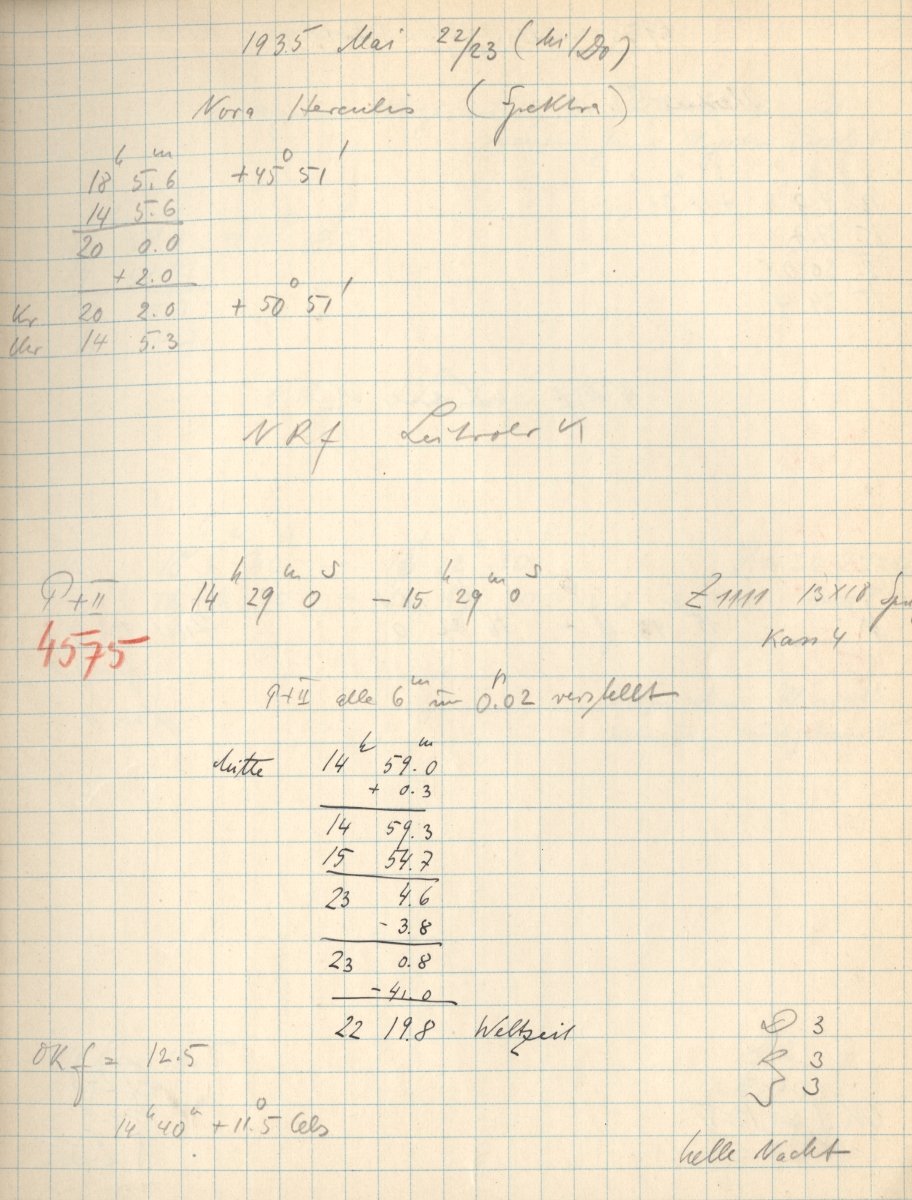 1935 Mai 22/23 (Mi/Do)
Nova Herculis (Spektra)
18ʰ 5.6ᵐ +45° 51'
14 5.6
20 0.0
+ 2.0
Kr 20 2.0 +50° 51'
Uhr 14 5.3
NRf Leitrohr K
P+II 14ʰ 29ᵐ 0ˢ – 15ʰ 29ᵐ 0ˢ Z 1111 13×18
4575 Kass 4
P+II alle 6ᵐ um 0.02 verstellt
Mitte 14ʰ 59.0ᵐ
+ 0.3
14 59.3
15 54.7
23 4.6
- 3.8
23 0.8
- 41.0
22 19.8 Weltzeit
D 3
OKf = 12.5 R 3
S 3
14ʰ 40ᵐ +11.5° Cels
helle Nacht